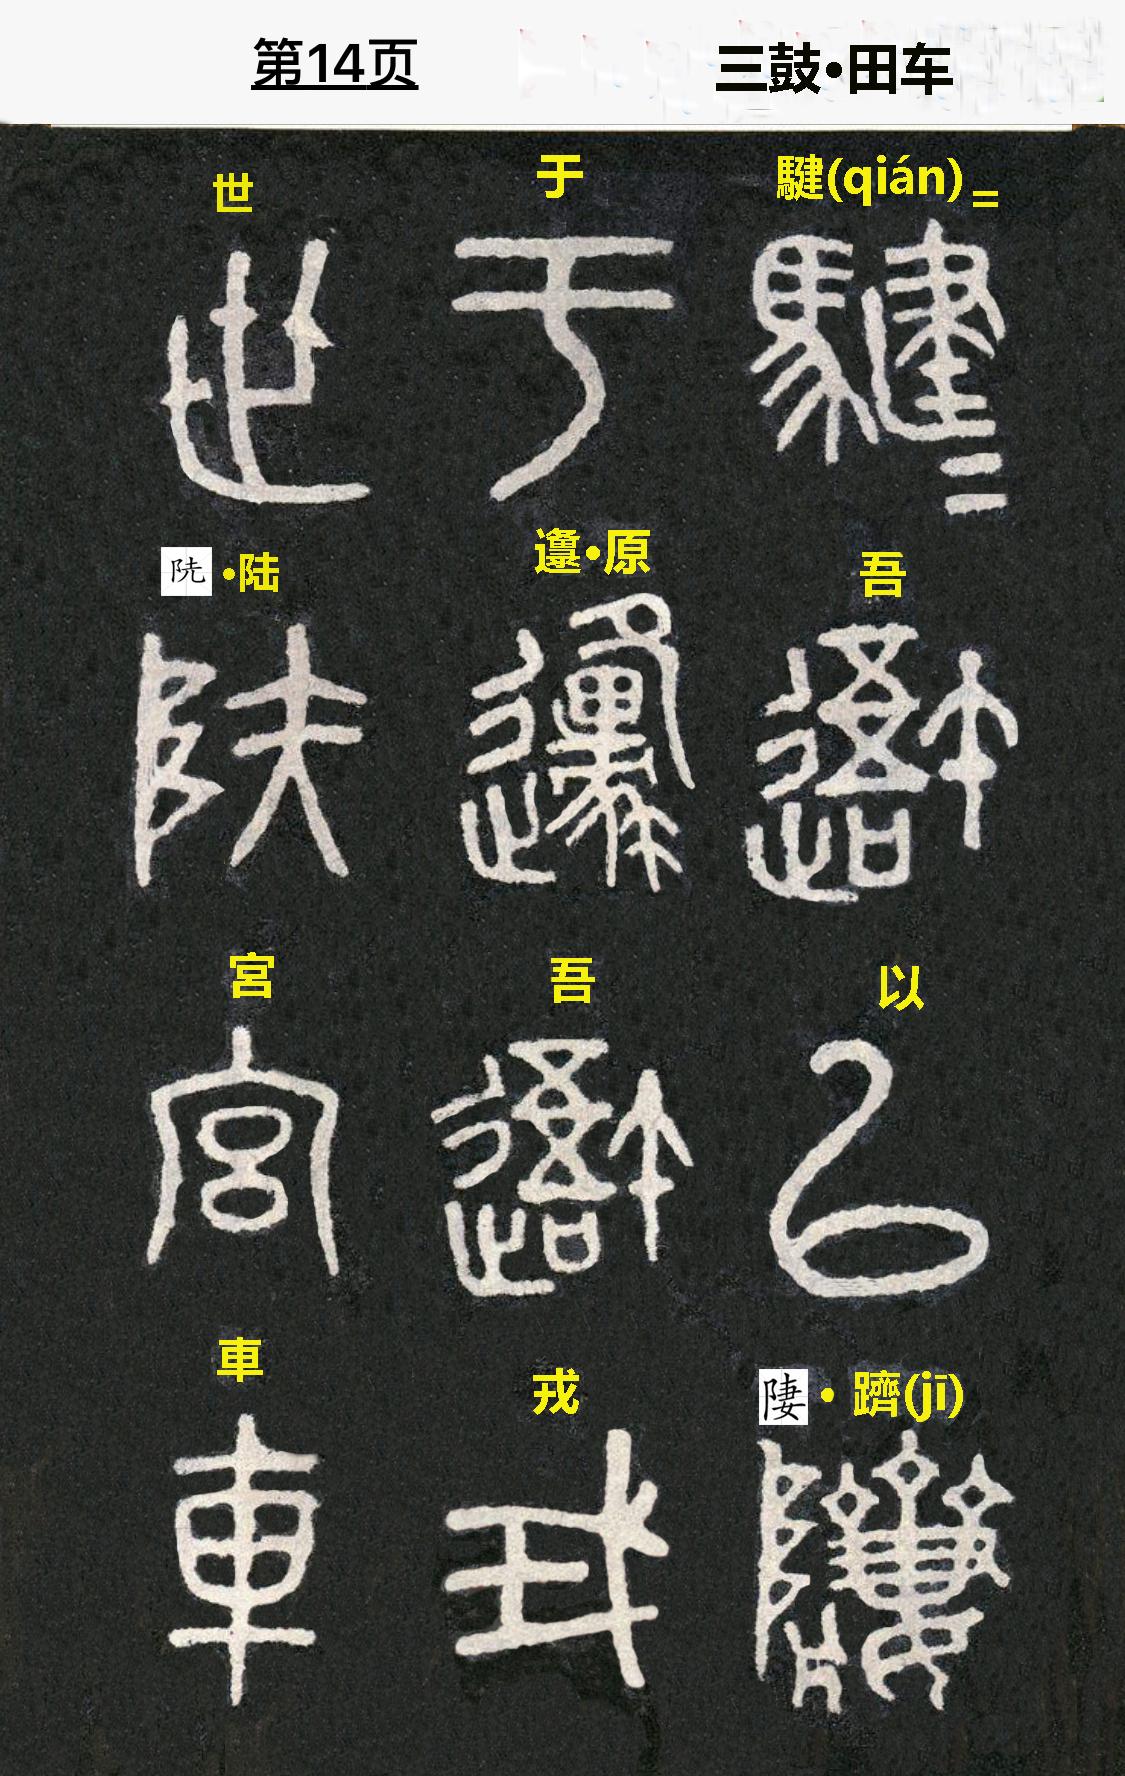 第14页
三鼓•田车
騝(qián)=
吾
以
• 躋(jī)
于
邍•原
吾
戎
世
•陆
宮
車